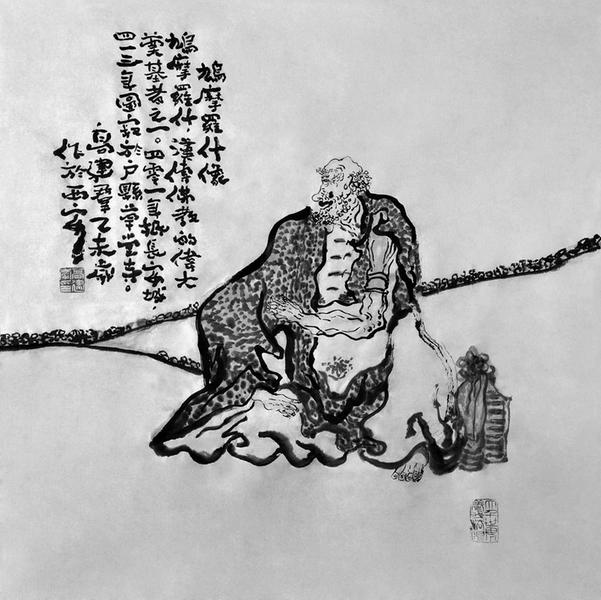 鳩摩羅什像
鳩摩羅什,漢傳佛教的偉大
奠基者之一。四零一年抵長安城,
四一三年圓寂於戶縣草堂寺。
高建羣乙未歲
作於西安